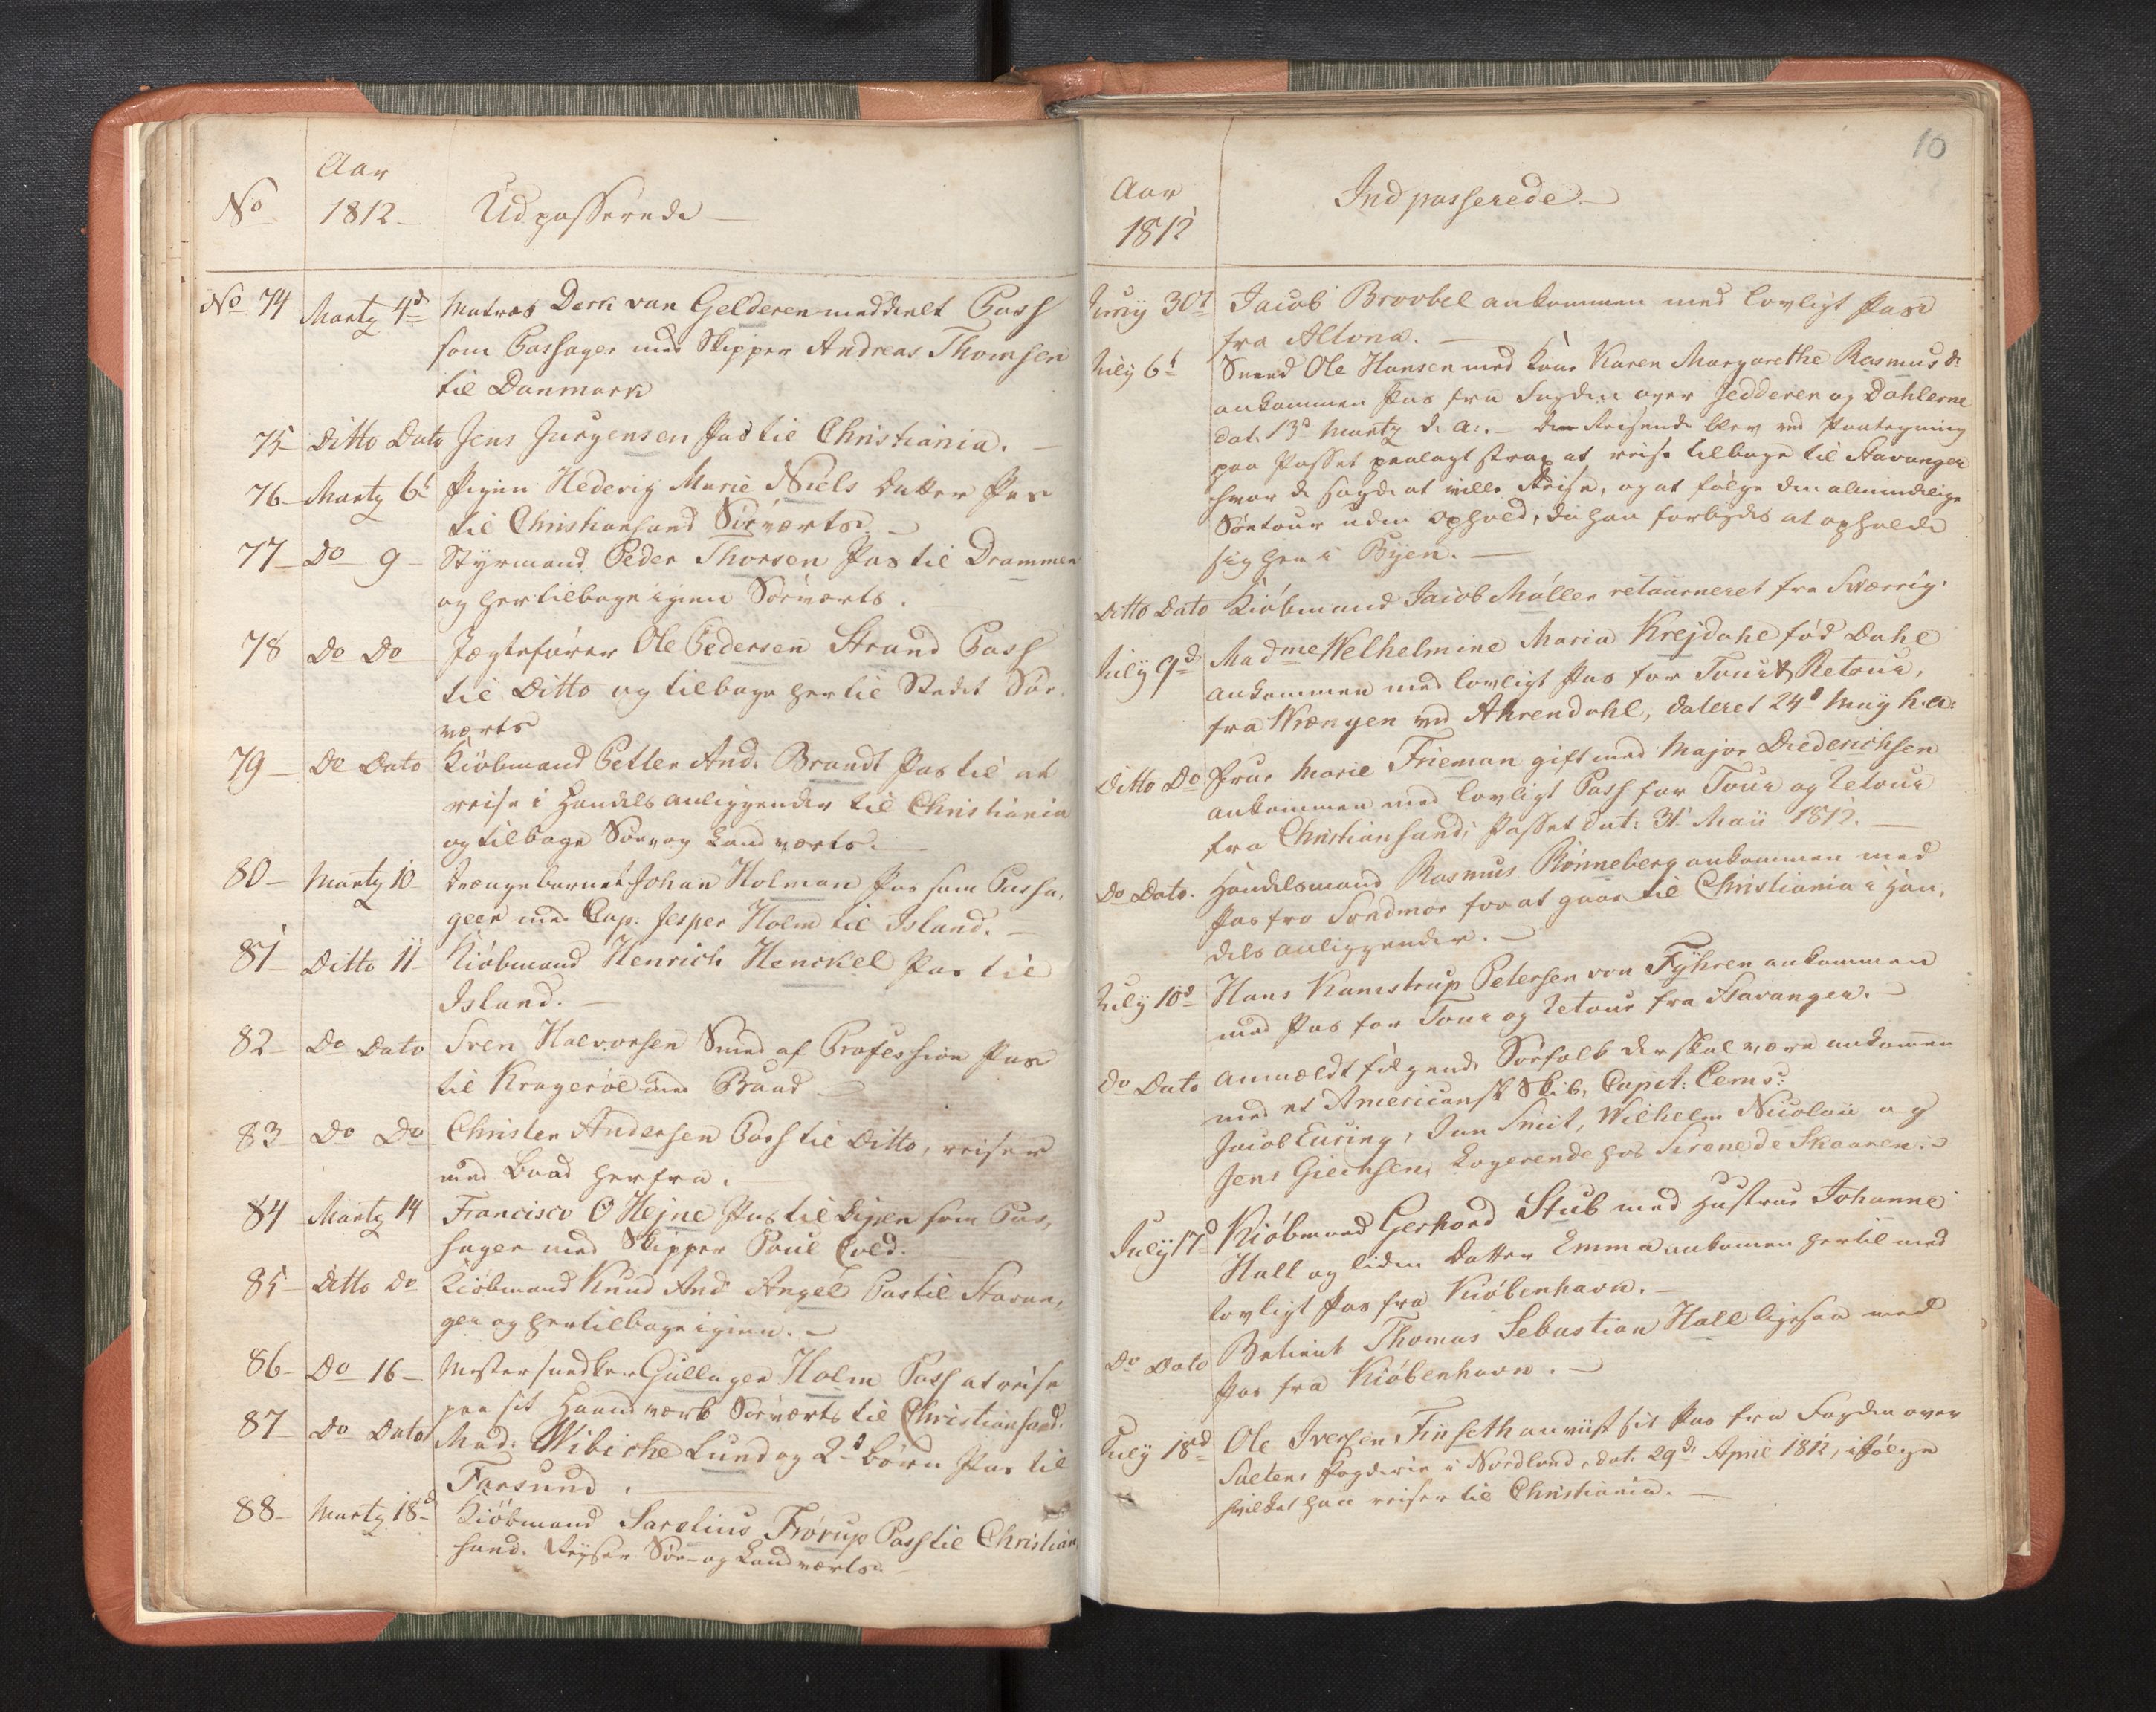 Aar
No 1812 Udpasserende
No 74 Martz 4d Matros Derk van Gelderen meddeelt Pass
som Passager med Skipper Andreas Thomsen
til Danmark
75 Ditto Dato Jens Jurgensen Pas til Christiania.
76 Martz 6t Pigen Hedevig Marie Niels Datter Pas
til Christiansand Søeværts.
77 Do 9 Styrmand Peder Thorsen Pas til Drammen
og her tilbage igien Søeværts.
78 Do Do Jægtefører Ole Pedersen Strand Pass
til Ditto og tilbage her til Stedet Søe,
værts
79 Do Dato Kiøbmand Petter And. Brandt Pas til at
reise i Handels anliggender til Christiania
og tilbage Søe og Landværts.
80 Martz 10 Drængebarnet Johan Holman Pas som Passa,
geer med Cap: Jesper Holm til Island.
81 Ditto 11 Kiøbmand Henrich Henckel Pas til
Island.
82 Do Dato Sven Halvorsen Smed af Profession Pas
til Kragerøe med Baad
83 Do Do Christen Andersen Pass til Ditto, reiser
med Baad herfra.
84 Martz 14 Francisco O Hejne Pas til Dijen som Pas,
sager med Skipper Poul Cold.
85 Ditto Do Kiøbmand Knud And Angel Pas til Stavan,
ger og her tilbage igien.
86 Do 16 Mester snedker Gullager Holm Pass at reise
paa sit Haandværk Søeværts til Christiansand.
87 Do Dato Mad. Wibiche Lund og 2de børn Pas til
Farsund.
88 Martz 18d Kiøbmand Sarelius Frørup Pass til Christian,
sand. Reyser Søe og Landværts.
10
Aar
1812 Indpasserede
Juny 30t Jacob Broobel ankommen med lovligt Pas
fra Altona.
July 6t Smed Ole Hansen med Kone Karen Margarethe Rasmusd.
ankommen Pas fra Fogden over Jedderen og Dahlerne
dat. 13d Martz d: a:. Den Reisende blev ved Paategning
paa Passet paalagt strax at reise tilbage til Stavanger
hvor de sagde at ville Reise, og at følge den almindelige
Søetour uden Ophold, da han forbydes at opholde
sig her i Byen.
Ditto Dato Kiøbmand Jacob Møller retourneret fra Sværrig.
July 9d Madme Welhelmine Maria Krejdahl fød Dahl
ankommen med lovligt Pas for Tour & Retour,
fra Wrængen ved Ahrendahl, dateret 24d Maÿ h. a:
Ditto Do Frue Marie Frieman gift med Major Diederichsen
ankommen med lovligt Pass for Tour og Retour
fra Christiansand; Passet dat: 31. Maii 1812.
Do Dato. Handelsmand Rasmus Rønneberg ankommen med
Pas fra Søndmør for at gaae til Christiania i Han,
dels anliggender.
July 10d Hans Kamstrup Petersen von Fÿhren ankommen
med Pas for Tour og Retour fra Stavanger.
Do Dato anmældt følgende Søefolk der skal være ankommen
med et Americansk Skib, Capit: Cems:
Jacob Eusing, Jan Smit, Wilhelm Nicolaii og
Jens Giensen, Logerende hos Sirene de Skaanen.
July 17d Kiøbmand Gerhard Stub med Hustrue Johanne
Hall og liden Datter Emma ankommen hertil med
lovligt Pas fra Kiøbenhavn.
Do Dato Betient Thomas Sebastian Hall ligesaa med
Pas fra Kiøbenhavn.
July 18d Ole Iversen Finseth anviist sit Pas fra Fogden over
Saltens Fogderie i Nordland, dat. 29d April 1812, ifølge
hvilket han reiser til Christiania.